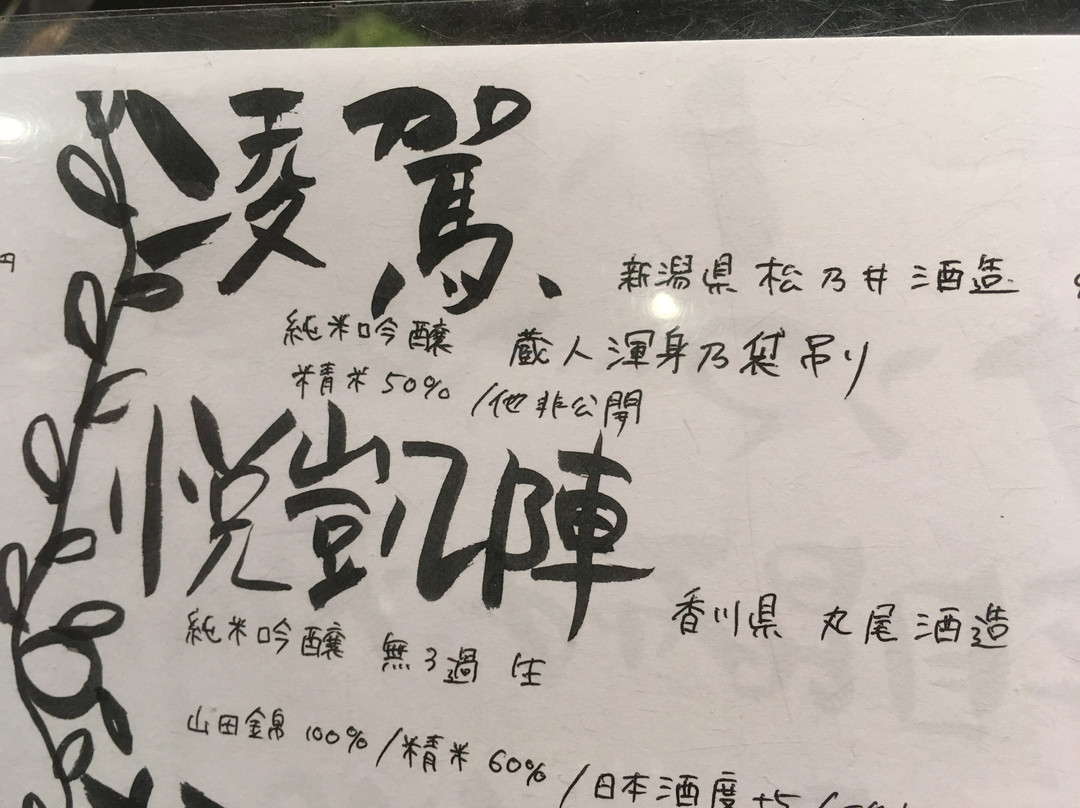 凌駕
新潟県 松乃井酒造
純米吟醸 蔵人渾身乃袋吊り
精米50% /他非公開
悦凱陣
香川県 丸尾酒造
純米吟醸 無ろ過 生
山田錦100% /精米60% /日本酒度+5/